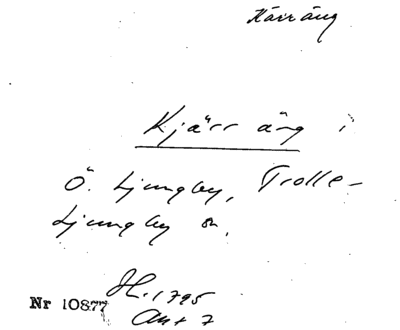 Kärräng
Kjärr äng i
Ö. Ljungby, Trolle-
Ljungby sn.
H. 1795
Nr 10877
Akt 7